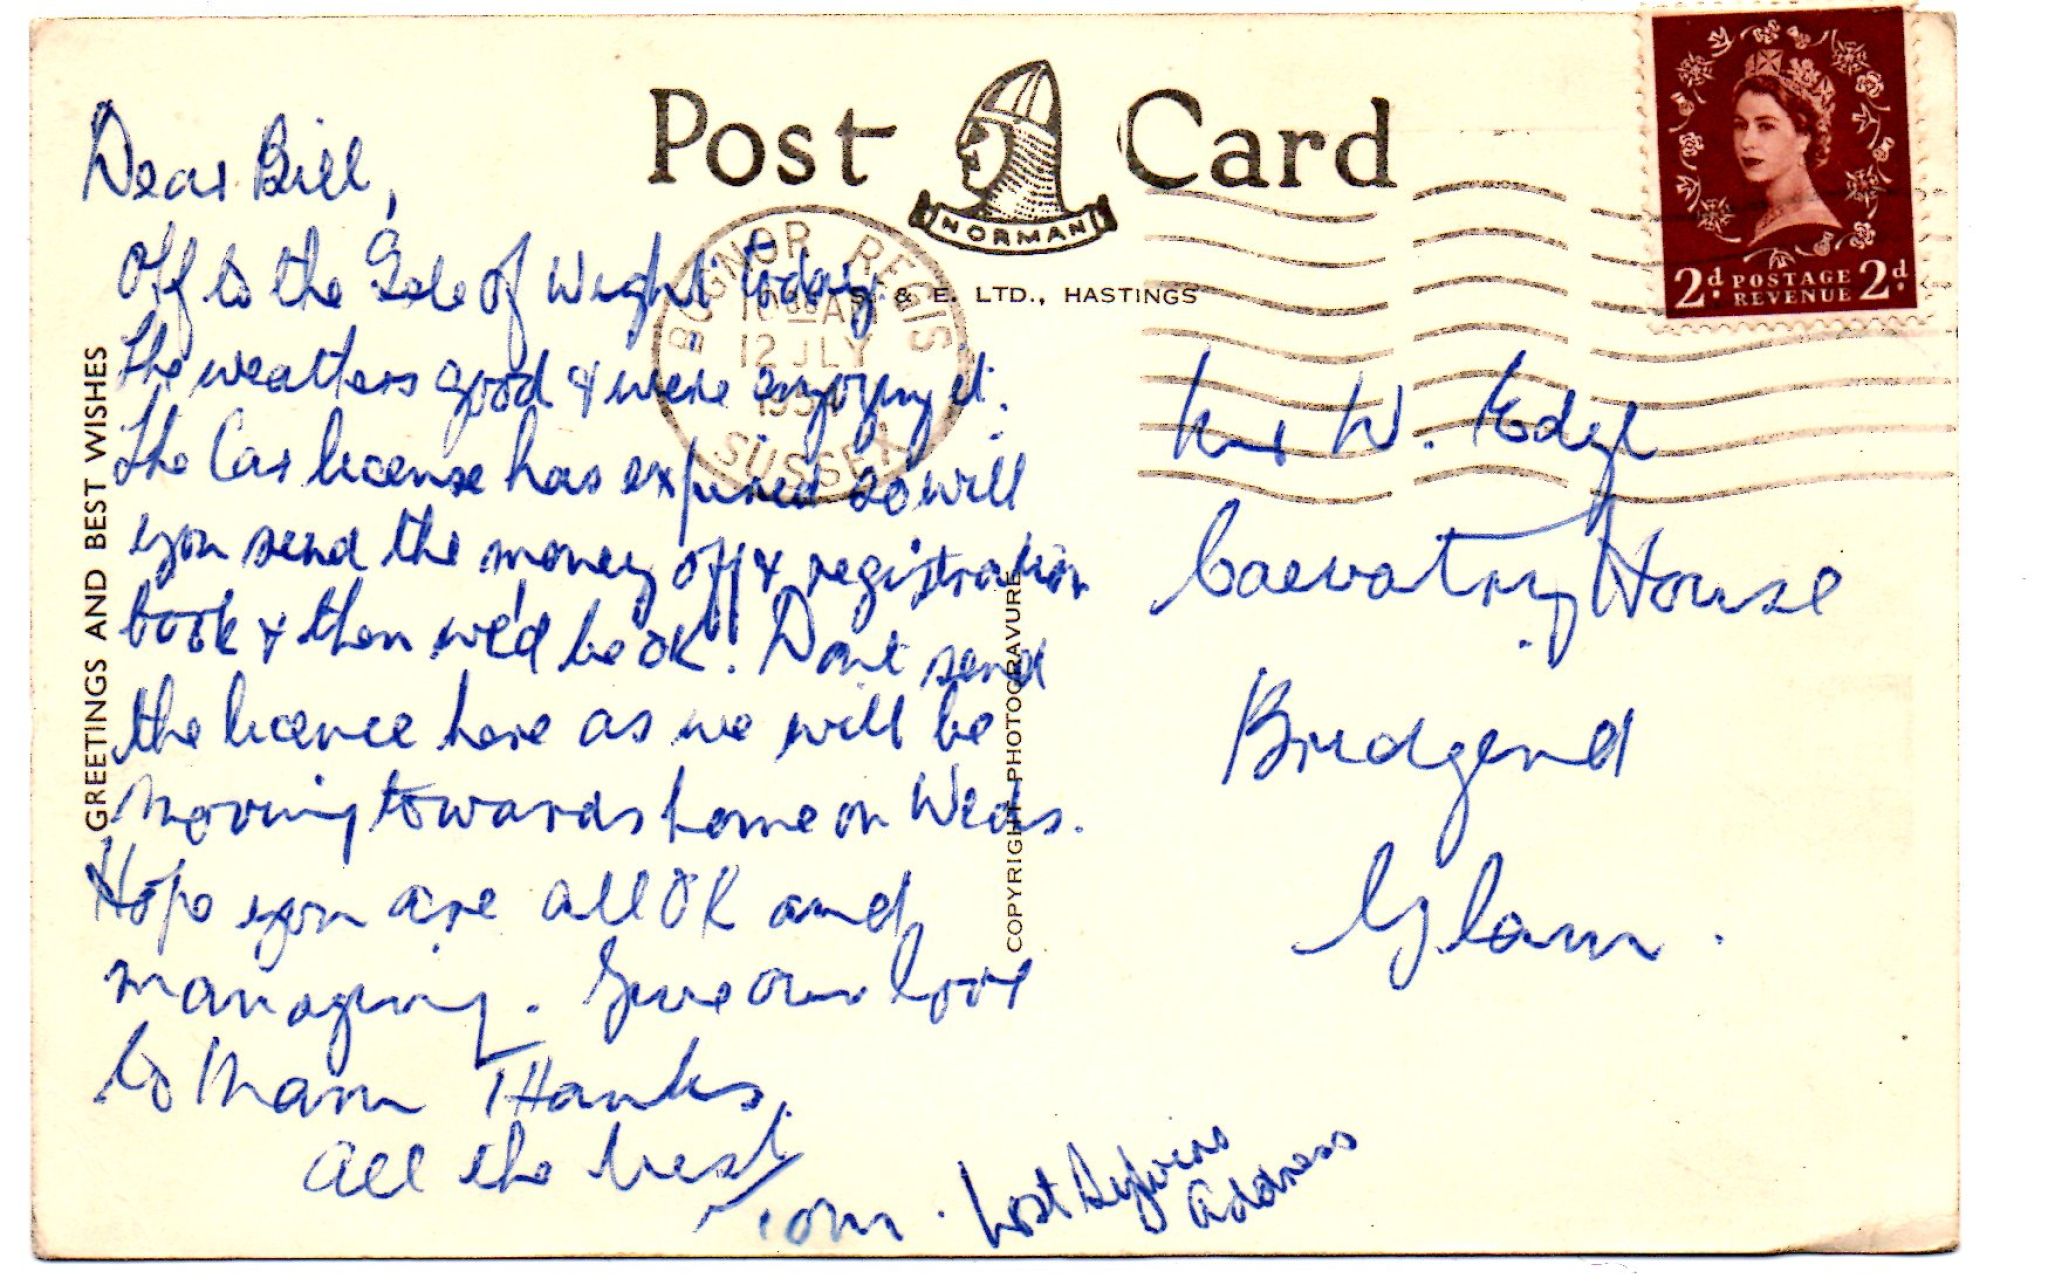 Post Card
NORMAN
S. & E. LTD., HASTINGS
BOGNOR REGIS
12 JLY
SUSSEX
2d. POSTAGE REVENUE 2d.
GREETINGS AND BEST WISHES
COPYRIGHT PHOTOGRAVURE
Dear Bill,
Off to the Isle of Wight today.
The weathers good & were enjoying it.
The Car license has expired so will
you send the money off & registration
book & then we'd be OK. Dont send
the licence here as we will be
moving towards home on Weds.
Hope you are all OK and
managing. Give our love
to Mam Thanks.
All the best
Tom. Lost Sylvias
Address
W. Edge
House
Bridgend
Glam.